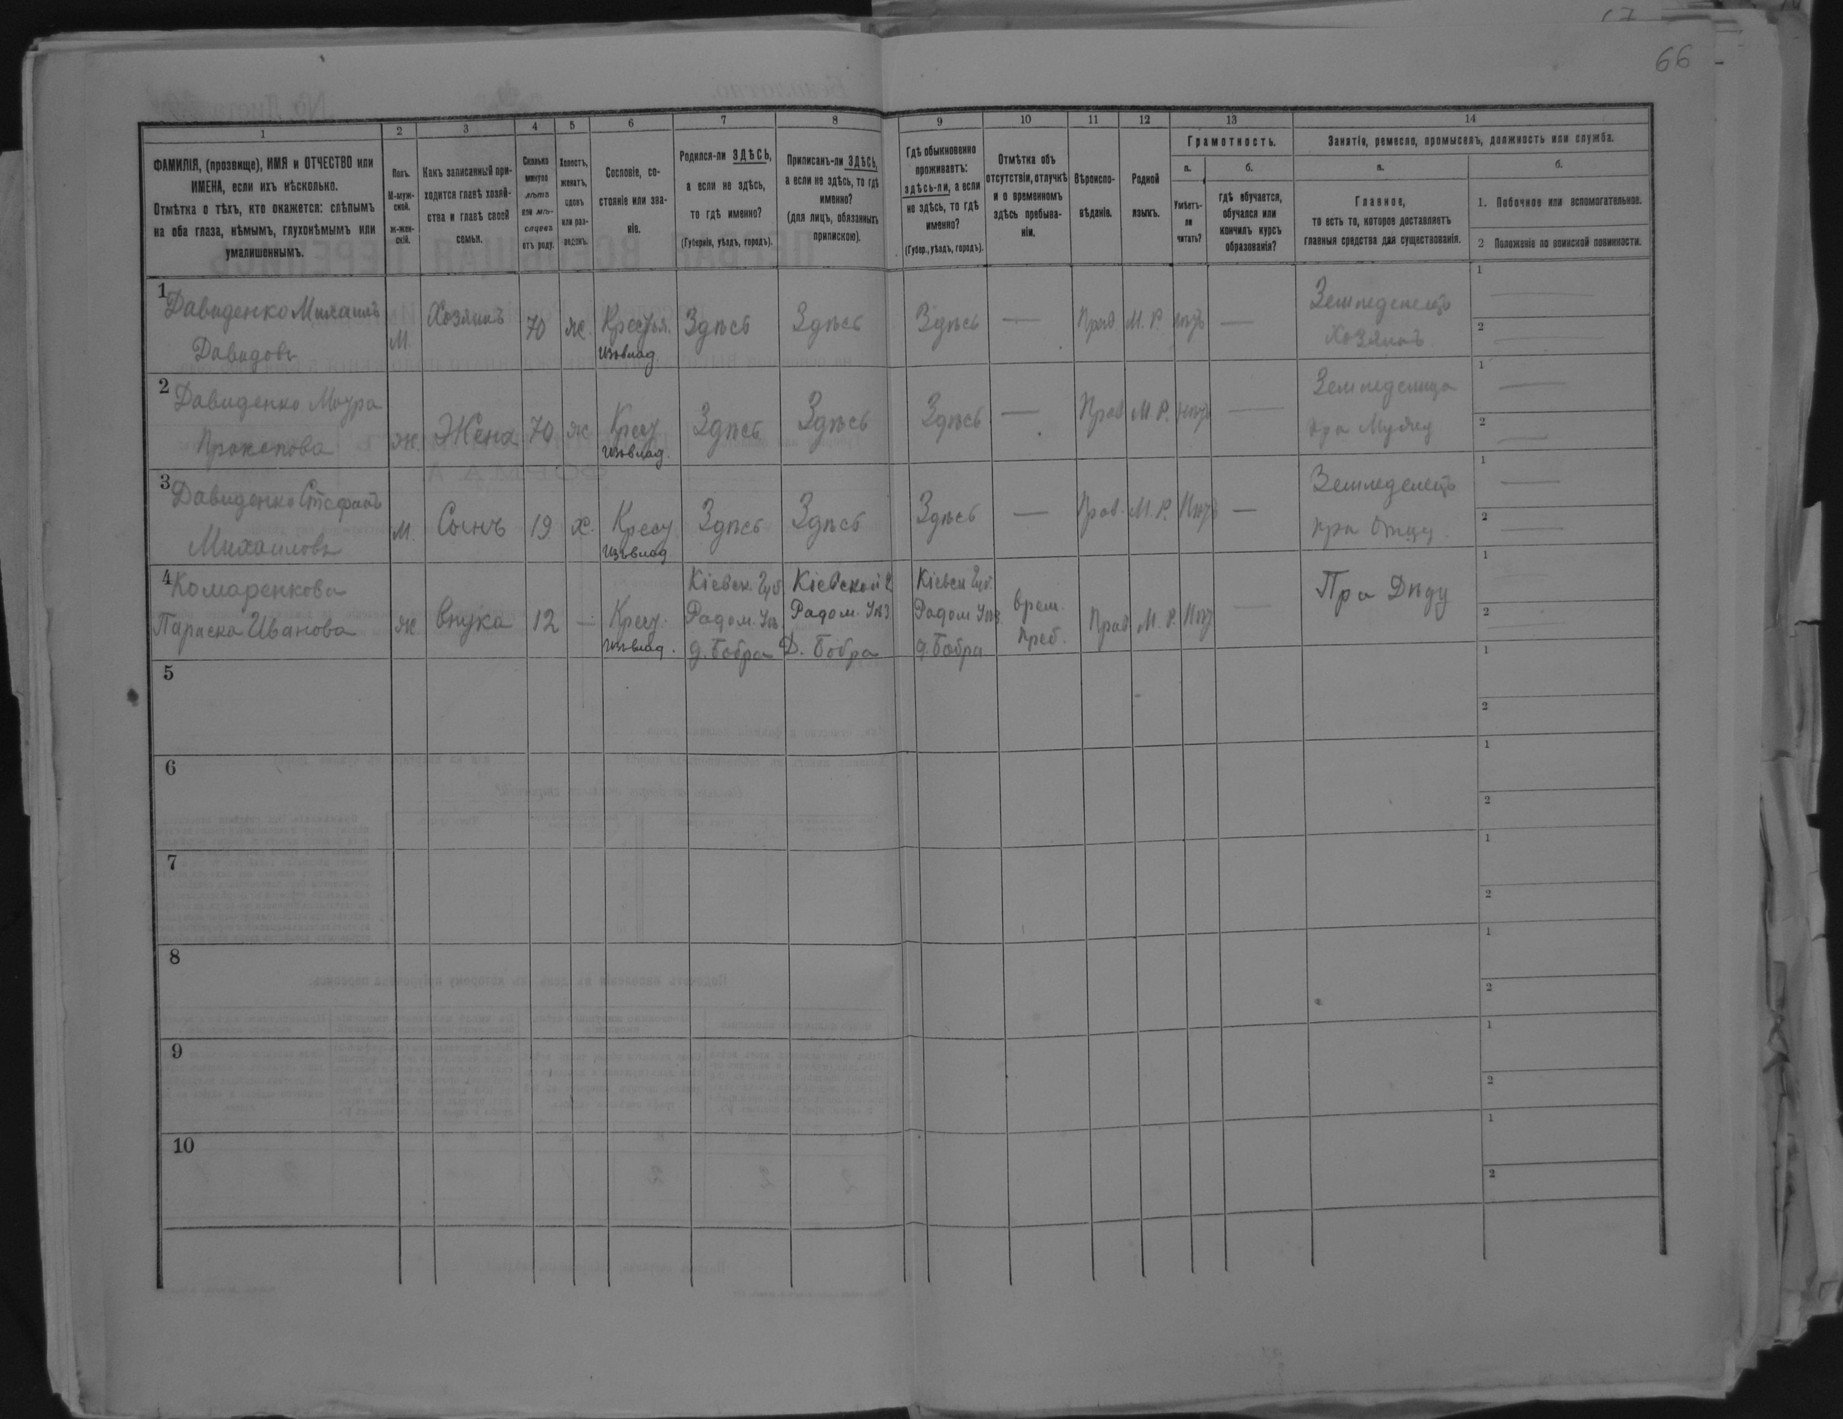 66
1
2
3
4
5
6
7
8
9
10
11
12
13
14
ФАМИЛІЯ, (прозвище), ИМЯ и ОТЧЕСТВО или
ИМЕНА, если ихъ нѣсколько.
Отмѣтка о тѣхъ, кто окажется: слѣпымъ
на оба глаза, нѣмымъ, глухонѣмымъ или
умалишеннымъ.
Полъ.
М-муж-
ской.
ж-жен-
скій.
Какъ записанный при-
ходится главѣ хозяй-
ства и главѣ своей
семьи.
Сколько
минуло
лѣтъ
или мѣ-
сяцевъ
отъ роду.
Холостъ,
женатъ,
вдовъ
или раз-
веденъ.
Сословіе, со-
стояніе или зва-
ніе.
Родился-ли ЗДѢСЬ,
а если не здѣсь,
то гдѣ именно?
(Губернія, уѣздъ, городъ).
Приписанъ-ли ЗДѢСЬ,
а если не здѣсь, то гдѣ
именно?
(для лицъ, обязанныхъ
припискою).
Гдѣ обыкновенно
проживаетъ:
здѣсь-ли, а если
не здѣсь, то гдѣ
именно?
(Губер., уѣздъ, городъ).
Отмѣтка объ
отсутствіи, отлучкѣ
и о временномъ
здѣсь пребыва-
ніи.
Вѣроиспо-
вѣданіе.
Родной
языкъ.
Грамотность.
а.
Умѣетъ-
ли
читать?
б.
гдѣ обучается,
обучался или
кончилъ курсъ
образованія?
Занятіе, ремесло, промыселъ, должность или служба.
а.
Главное,
то есть то, которое доставляетъ
главныя средства для существованія.
б.
1. Побочное или вспомогательное.
2 Положеніе по воинской повинности.
1
Давиденко Михаилъ
Давидовъ
М.
Хозяинъ
70
ж.
Крестья.
изъ влад
Здѣсь
Здѣсь
Здѣсь
Прав
М. Р.
Нѣтъ
Земледелецъ
Хозяинъ
1
2
2
Давиденко
Прокопова
ж.
Жена
70
ж
Крест
изъ влад.
Здѣсь
Здѣсь
Здѣсь
Прав
М. Р.
Нѣтъ
при Мужу
1
2
3
Давиденко Стефанъ
Михаиловъ
м.
Сынъ
19
х.
Крест
изъ влад
Здѣсь
Здѣсь
Здѣсь
Прав.
М. Р.
Нѣтъ
Земледелецъ
при Отцу
1
2
4
Комаренкова
Параска Иванова
ж
Внука
12
Крест.
изъ влад.
Кіевск. Губ.
Радом. Уѣз
д. Бобра
Кіевской Г
Радом. Уѣз
Д. Бобра
Кіевск Губ.
Радом Уѣз
д. Бобра
врем.
преб.
Прав
М. Р.
Нѣт
При Дѣду
1
2
5
1
2
6
1
2
7
1
2
8
1
2
9
1
2
10
1
2